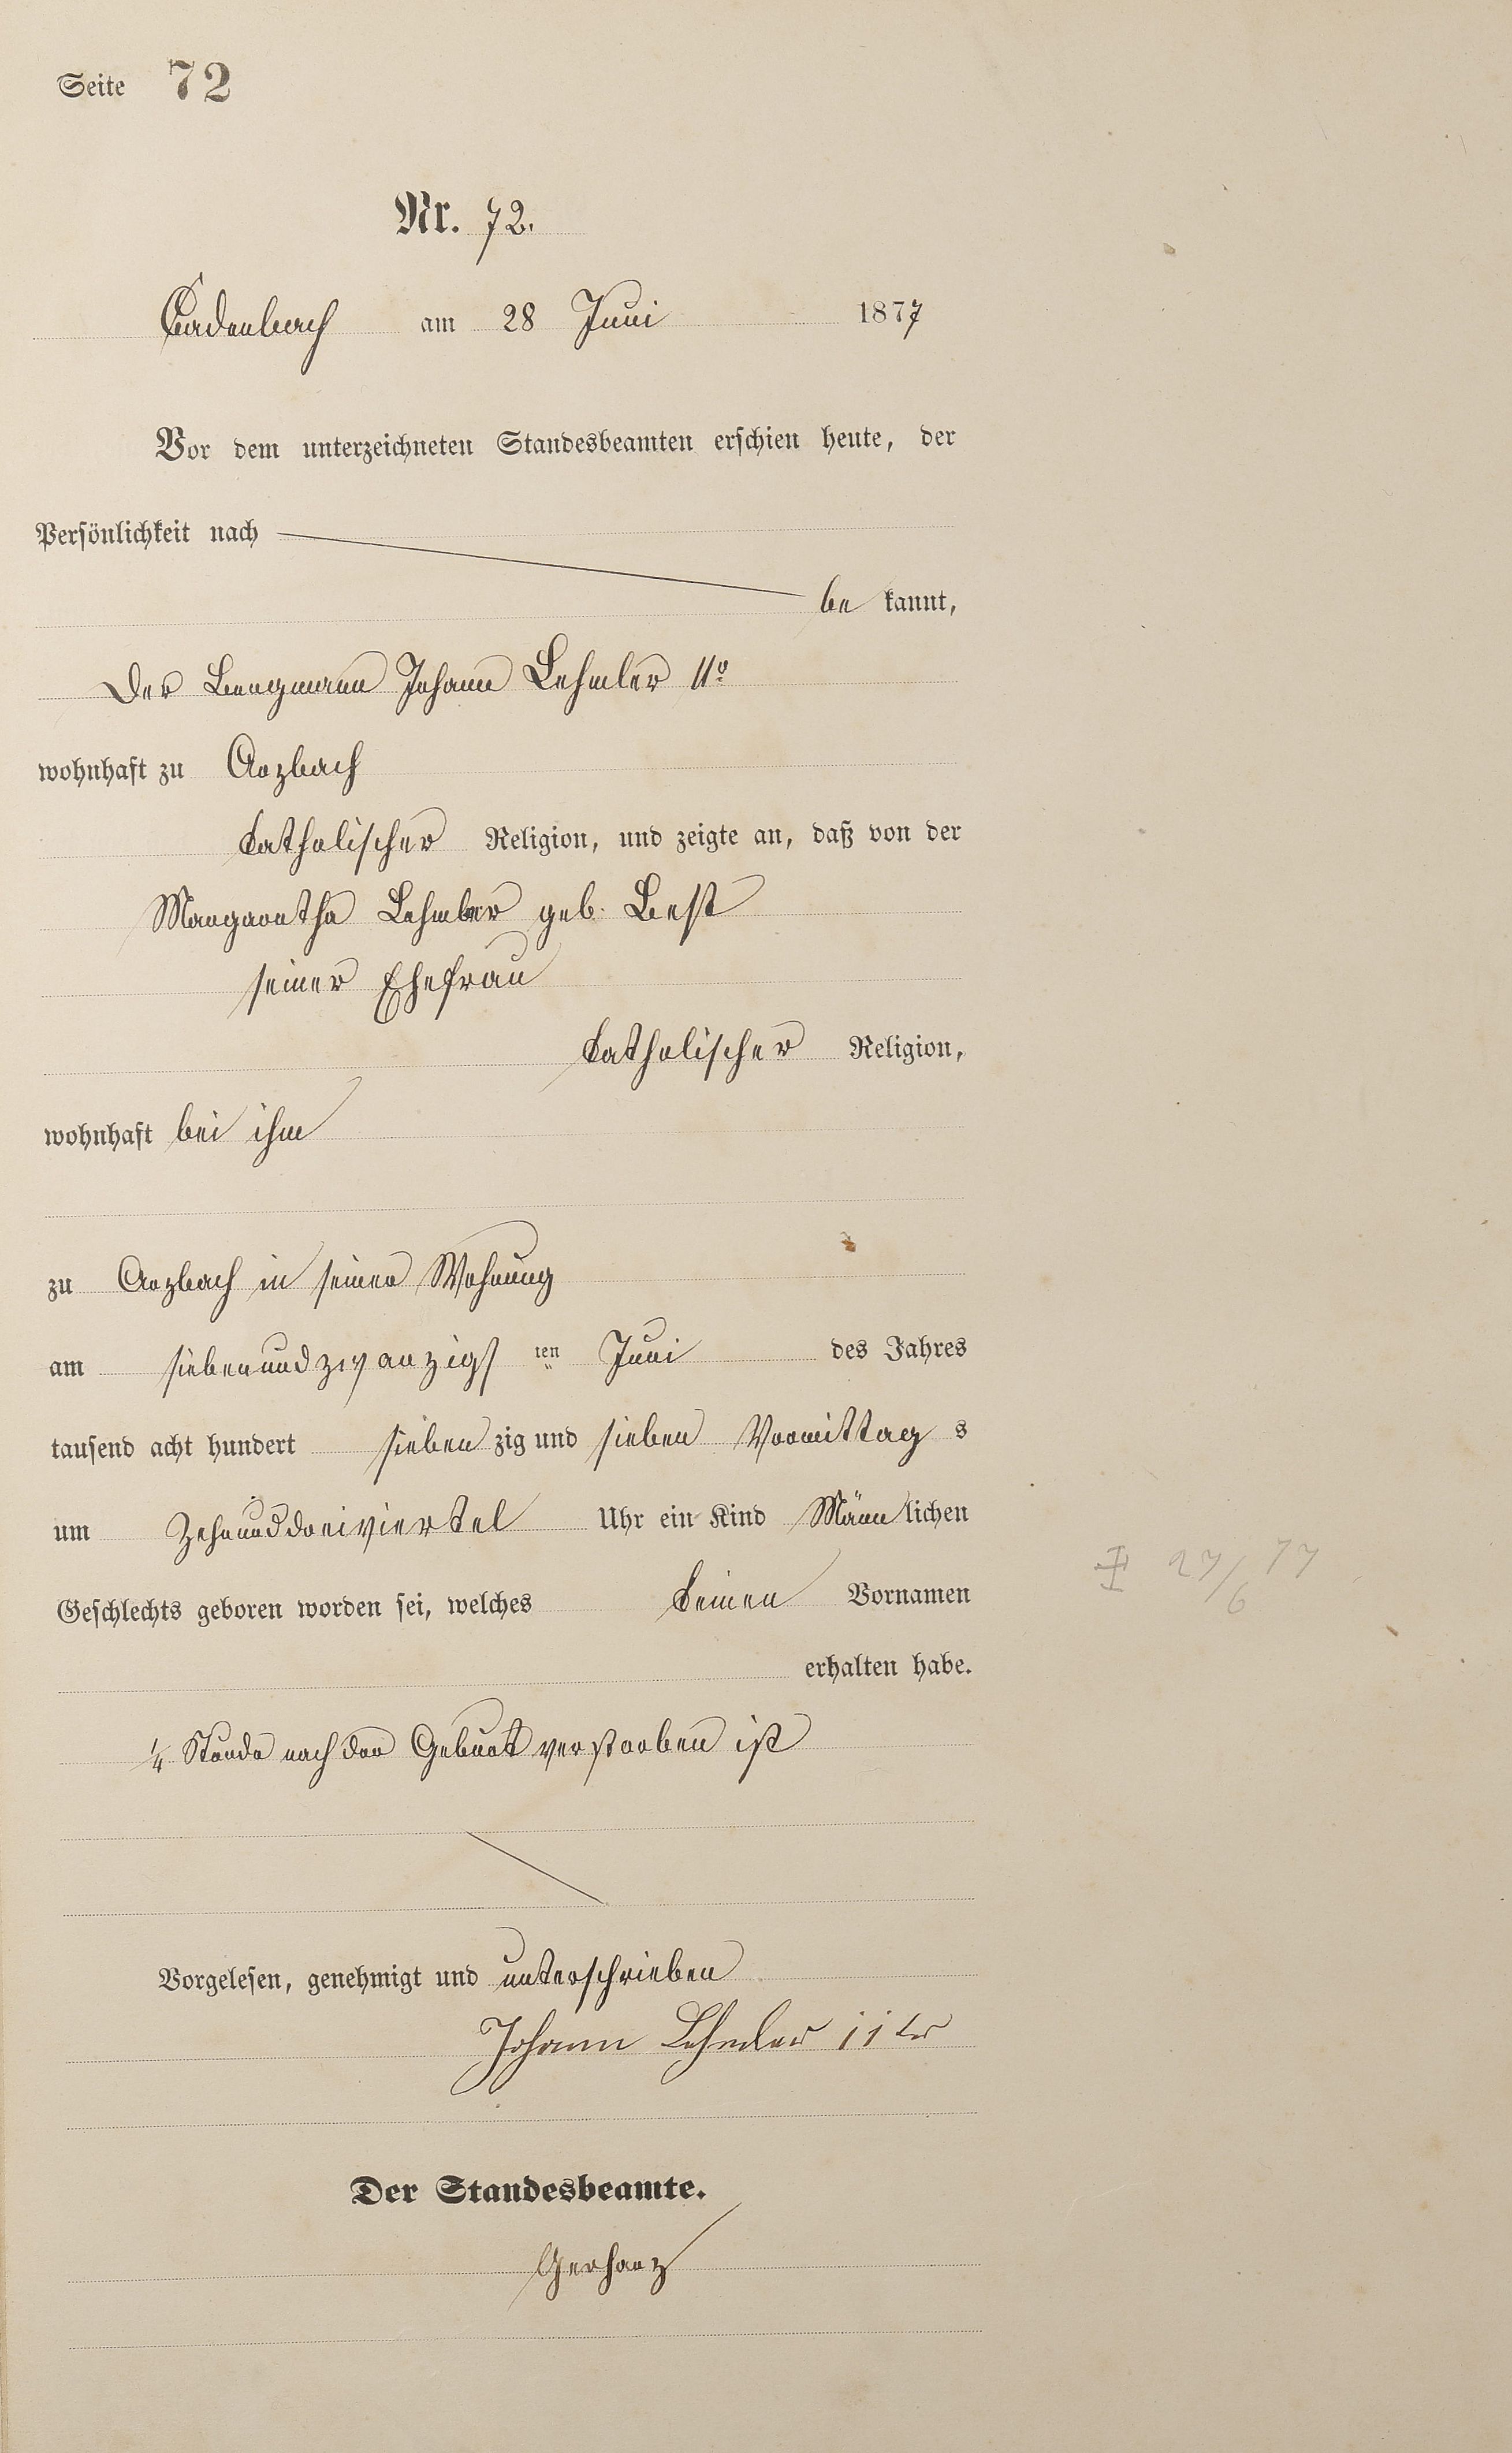 Seite 72
Nr. 72.
Cadenbach am 28 Juni 1877
Vor dem unterzeichneten Standesbeamten erschien heute, der
Persönlichkeit nach
be kannt,
Der Bergmann Johann Lehmler II.
wohnhaft zu Arzbach
katholischer Religion, und zeigte an, daß von der
Margaretha Lehmler geb. Best
seiner Ehefrau
katholischer Religion,
wohnhaft bei ihm
zu Arzbach in seiner Wohnung
am siebenundzwanzigs ten Juni des Jahres
tausend acht hundert sieben zig und sieben Vormittag s
um Zehnunddreiviertel Uhr ein Kind Männ lichen
Geschlechts geboren worden sei, welches keinen Vornamen
erhalten habe.
1/4 Stunde nach der Geburt verstorben ist
Vorgelesen, genehmigt und unterschrieben
Johann Lehmler iiter
Der Standesbeamte.
Gerharz
27/6 77